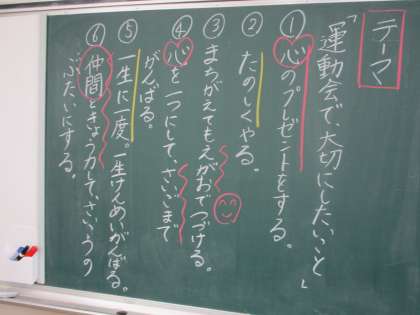 テーマ
「運動会で、大切にしたいこと」
①心のプレゼントをする。
②たのしくやる。
③まちがえてもえがおでつづける。
④心を一つにして、さいごまで
がんばる。
⑤一生に一度。一生けんめいがんばる。
⑥仲間ときょう力して、さいこうの
ぶたいにする。